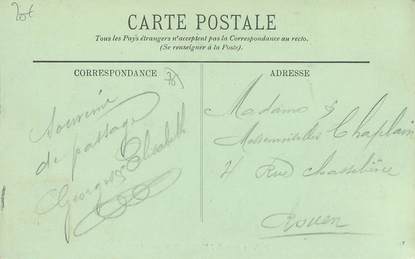 20f
CARTE POSTALE
Tous les Pays étrangers n'acceptent pas la Correspondance au recto.
(Se renseigner à la Poste).
CORRESPONDANCE
ADRESSE
Souvenir
de passage
Georges & Elisabeth
Madame &
Mesdemoiselles Chaplain
Rue
Rouen